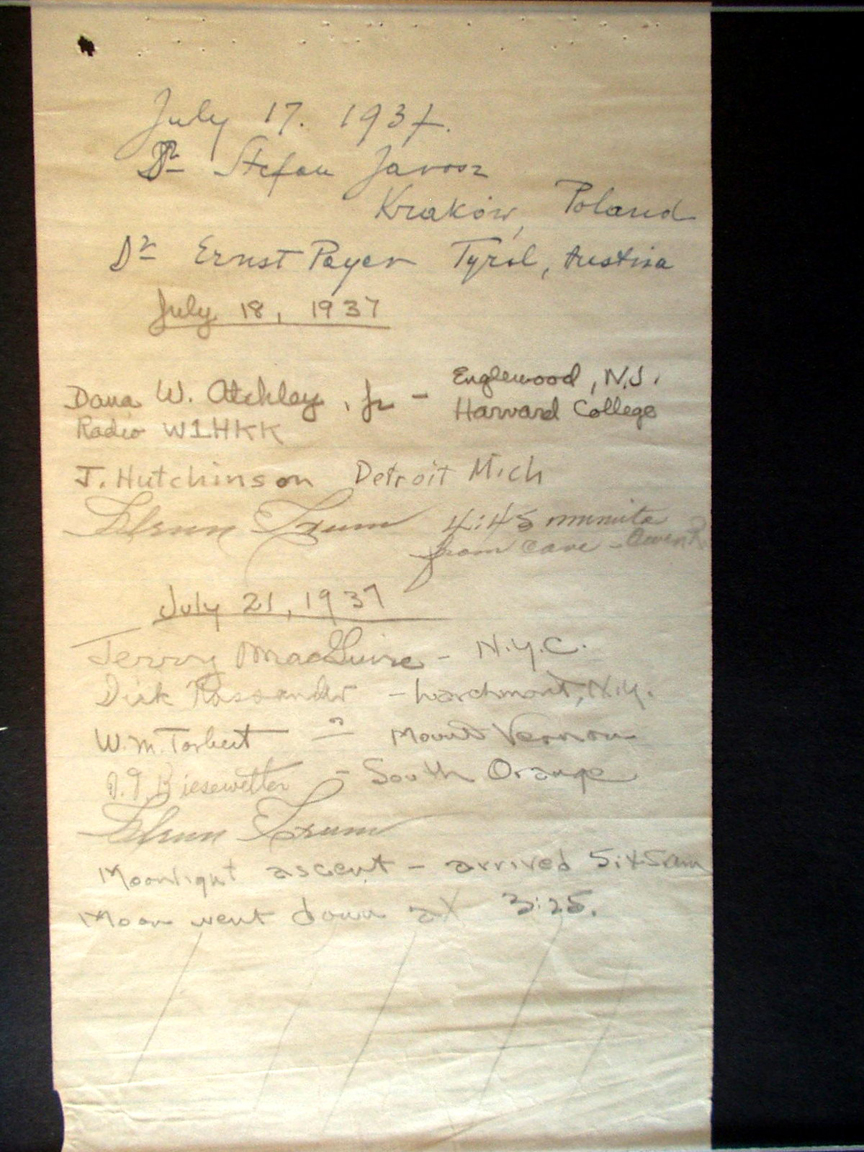 July 17. 1937.
Dr Stefan Jarosz
Kraków, Poland
Dr Ernst Payer Tyrol, Austria
July 18, 1937
Dana W. Atchley, Jr - Englewood, N.J.
Harvard College
Radio W1HKK
J. Hutchinson Detroit Mich
Glenn Exum 4:45 minute
from cave -
July 21, 1937
Jerry MacGuire - N.Y.C.
Dick - Larchmont, N.Y.
W.M. Torbert - Mount Vernon
Biesewetter - South Orange
Glenn Exum
Moonlight ascent - arrived 5:45am
Moon went down at 3:25.